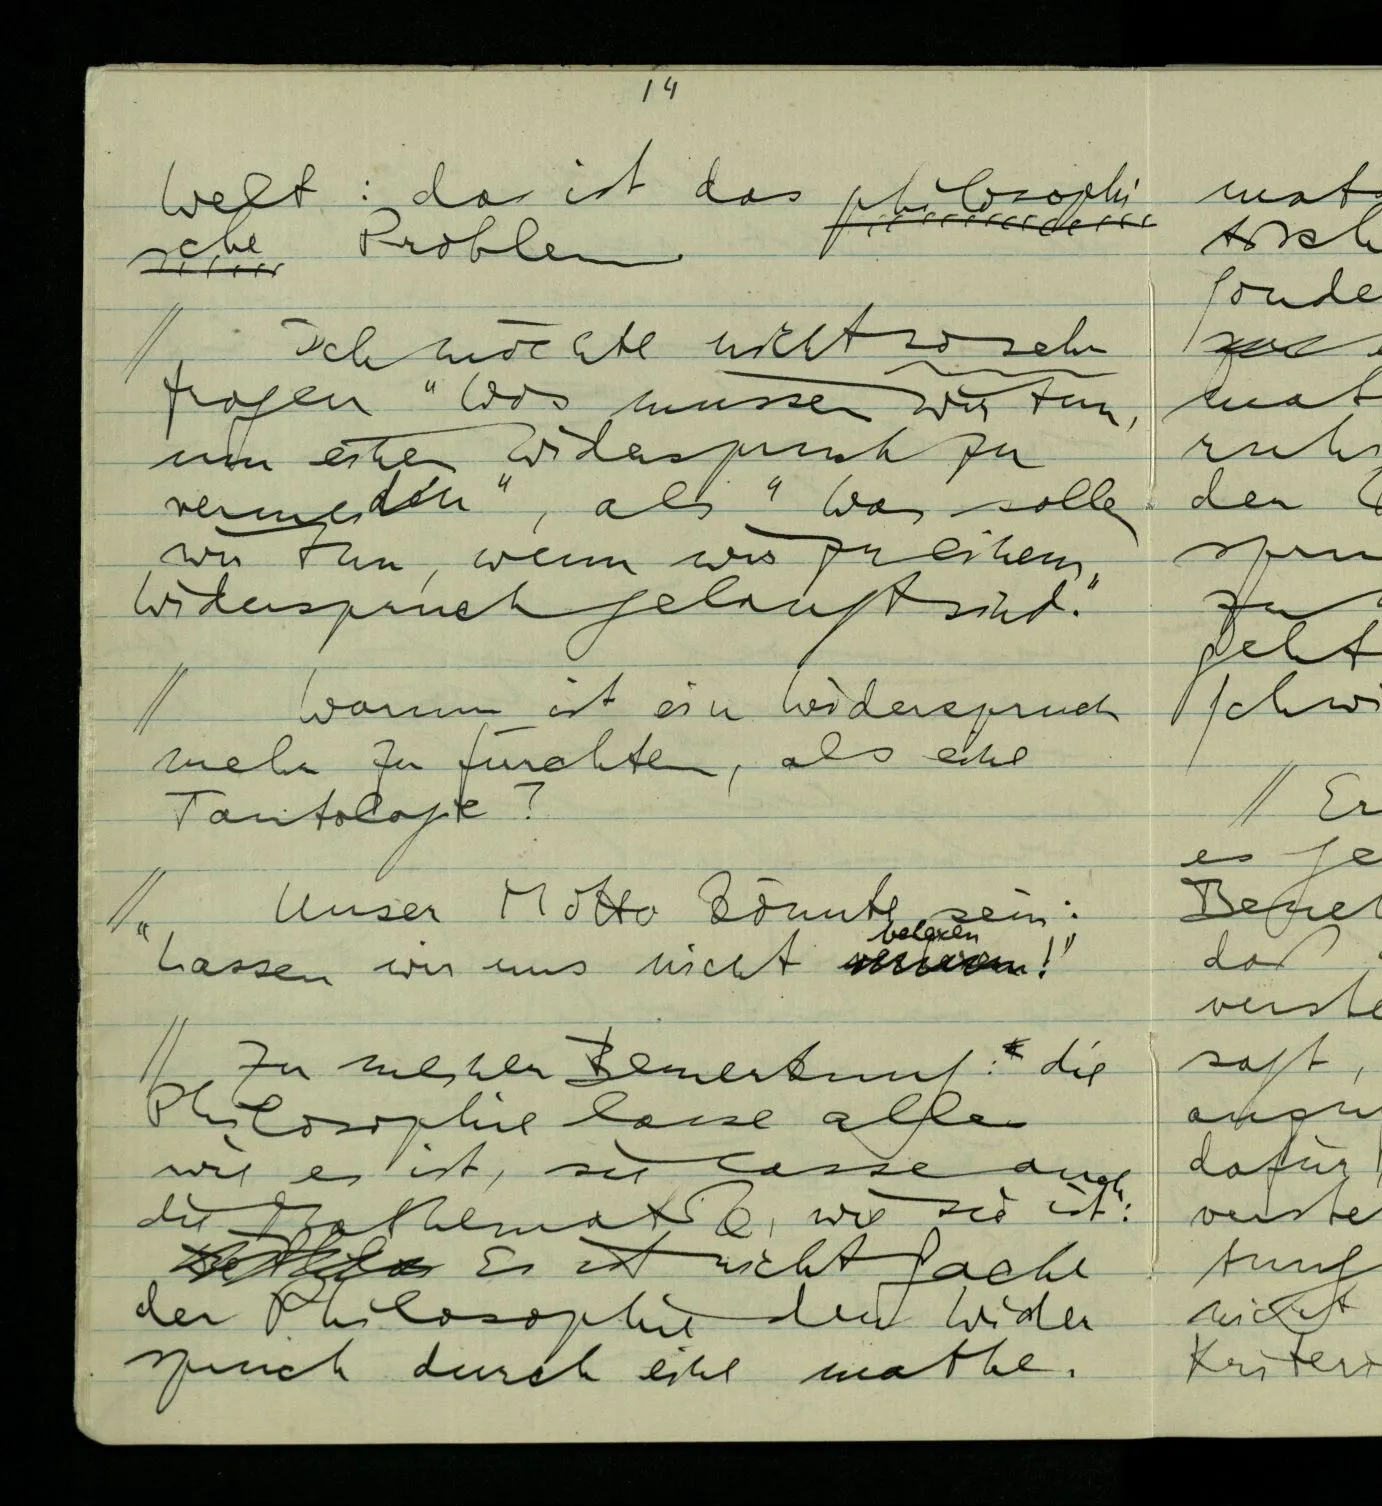 14
Welt: das ist das philosophi
sche Problem.
// Ich möchte nicht so sehr
fragen "Was müssen wir tun,
um einen Widerspruch zu
vermeiden", als "Was sollen
wir tun, wenn wir zu einem
Widerspruch gelangt sind."
// Warum ist ein Widerspruch
mehr zu fürchten, als eine
Tautologie?
// Unser Motto könnte sein:
"Lassen wir uns nicht behexen!"
// Zu meiner Bemerkung: die
Philosophie lasse alles
wie es ist, sie lasse auch
die Mathematik, wie sie ist:
Es ist nicht Sache
der Philosophie den Wider
spruch durch eine mathe.
mat
sonde
mat
ruh
den
spru
zu
geht
schwi
// Er
es ge
Bemer
daß
verste
sagt,
dafür
verste
tung
nicht
Kriteri